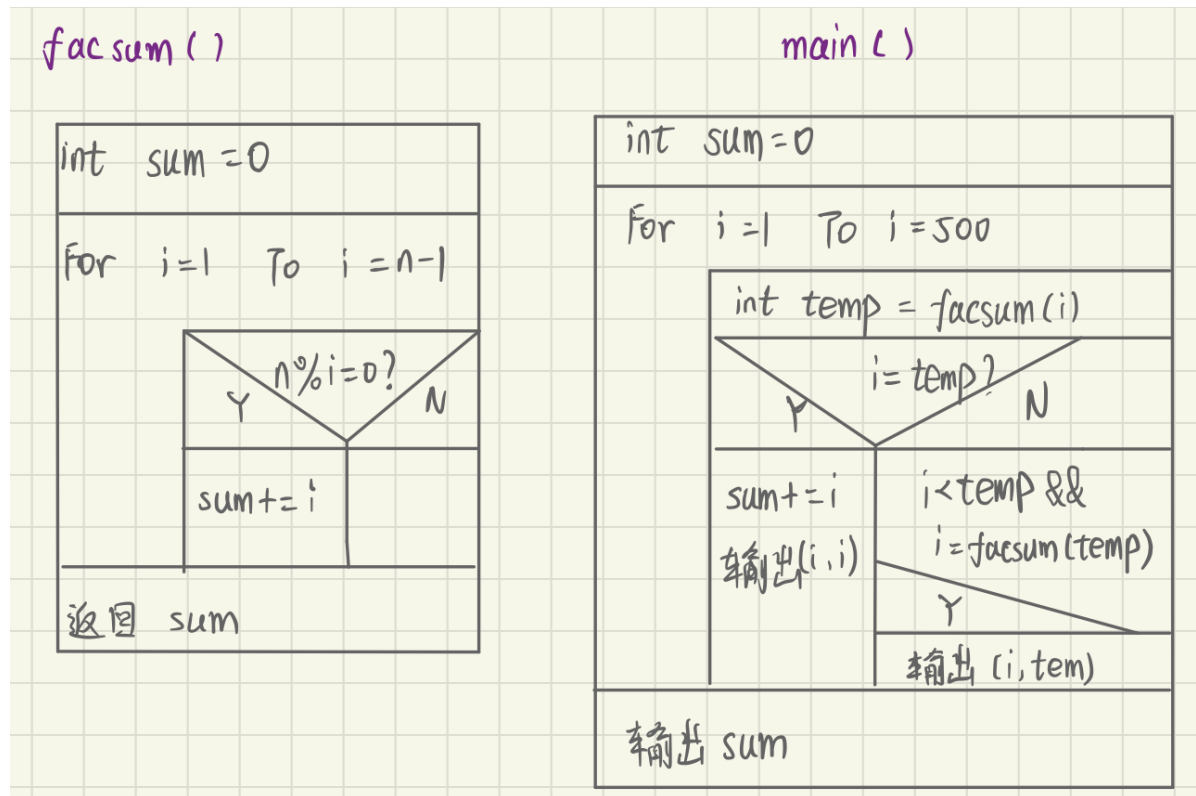 facsum()
int sum=0
For i=1 To i=n-1
n%i=0?
Y
N
sum+=i
返回 sum
main()
int sum=0
For i=1 To i=500
int temp = facsum(i)
i=temp?
Y
N
sum+=i
输出(i,i)
i<temp &&
i=facsum(temp)
Y
输出(i,tem)
输出 sum